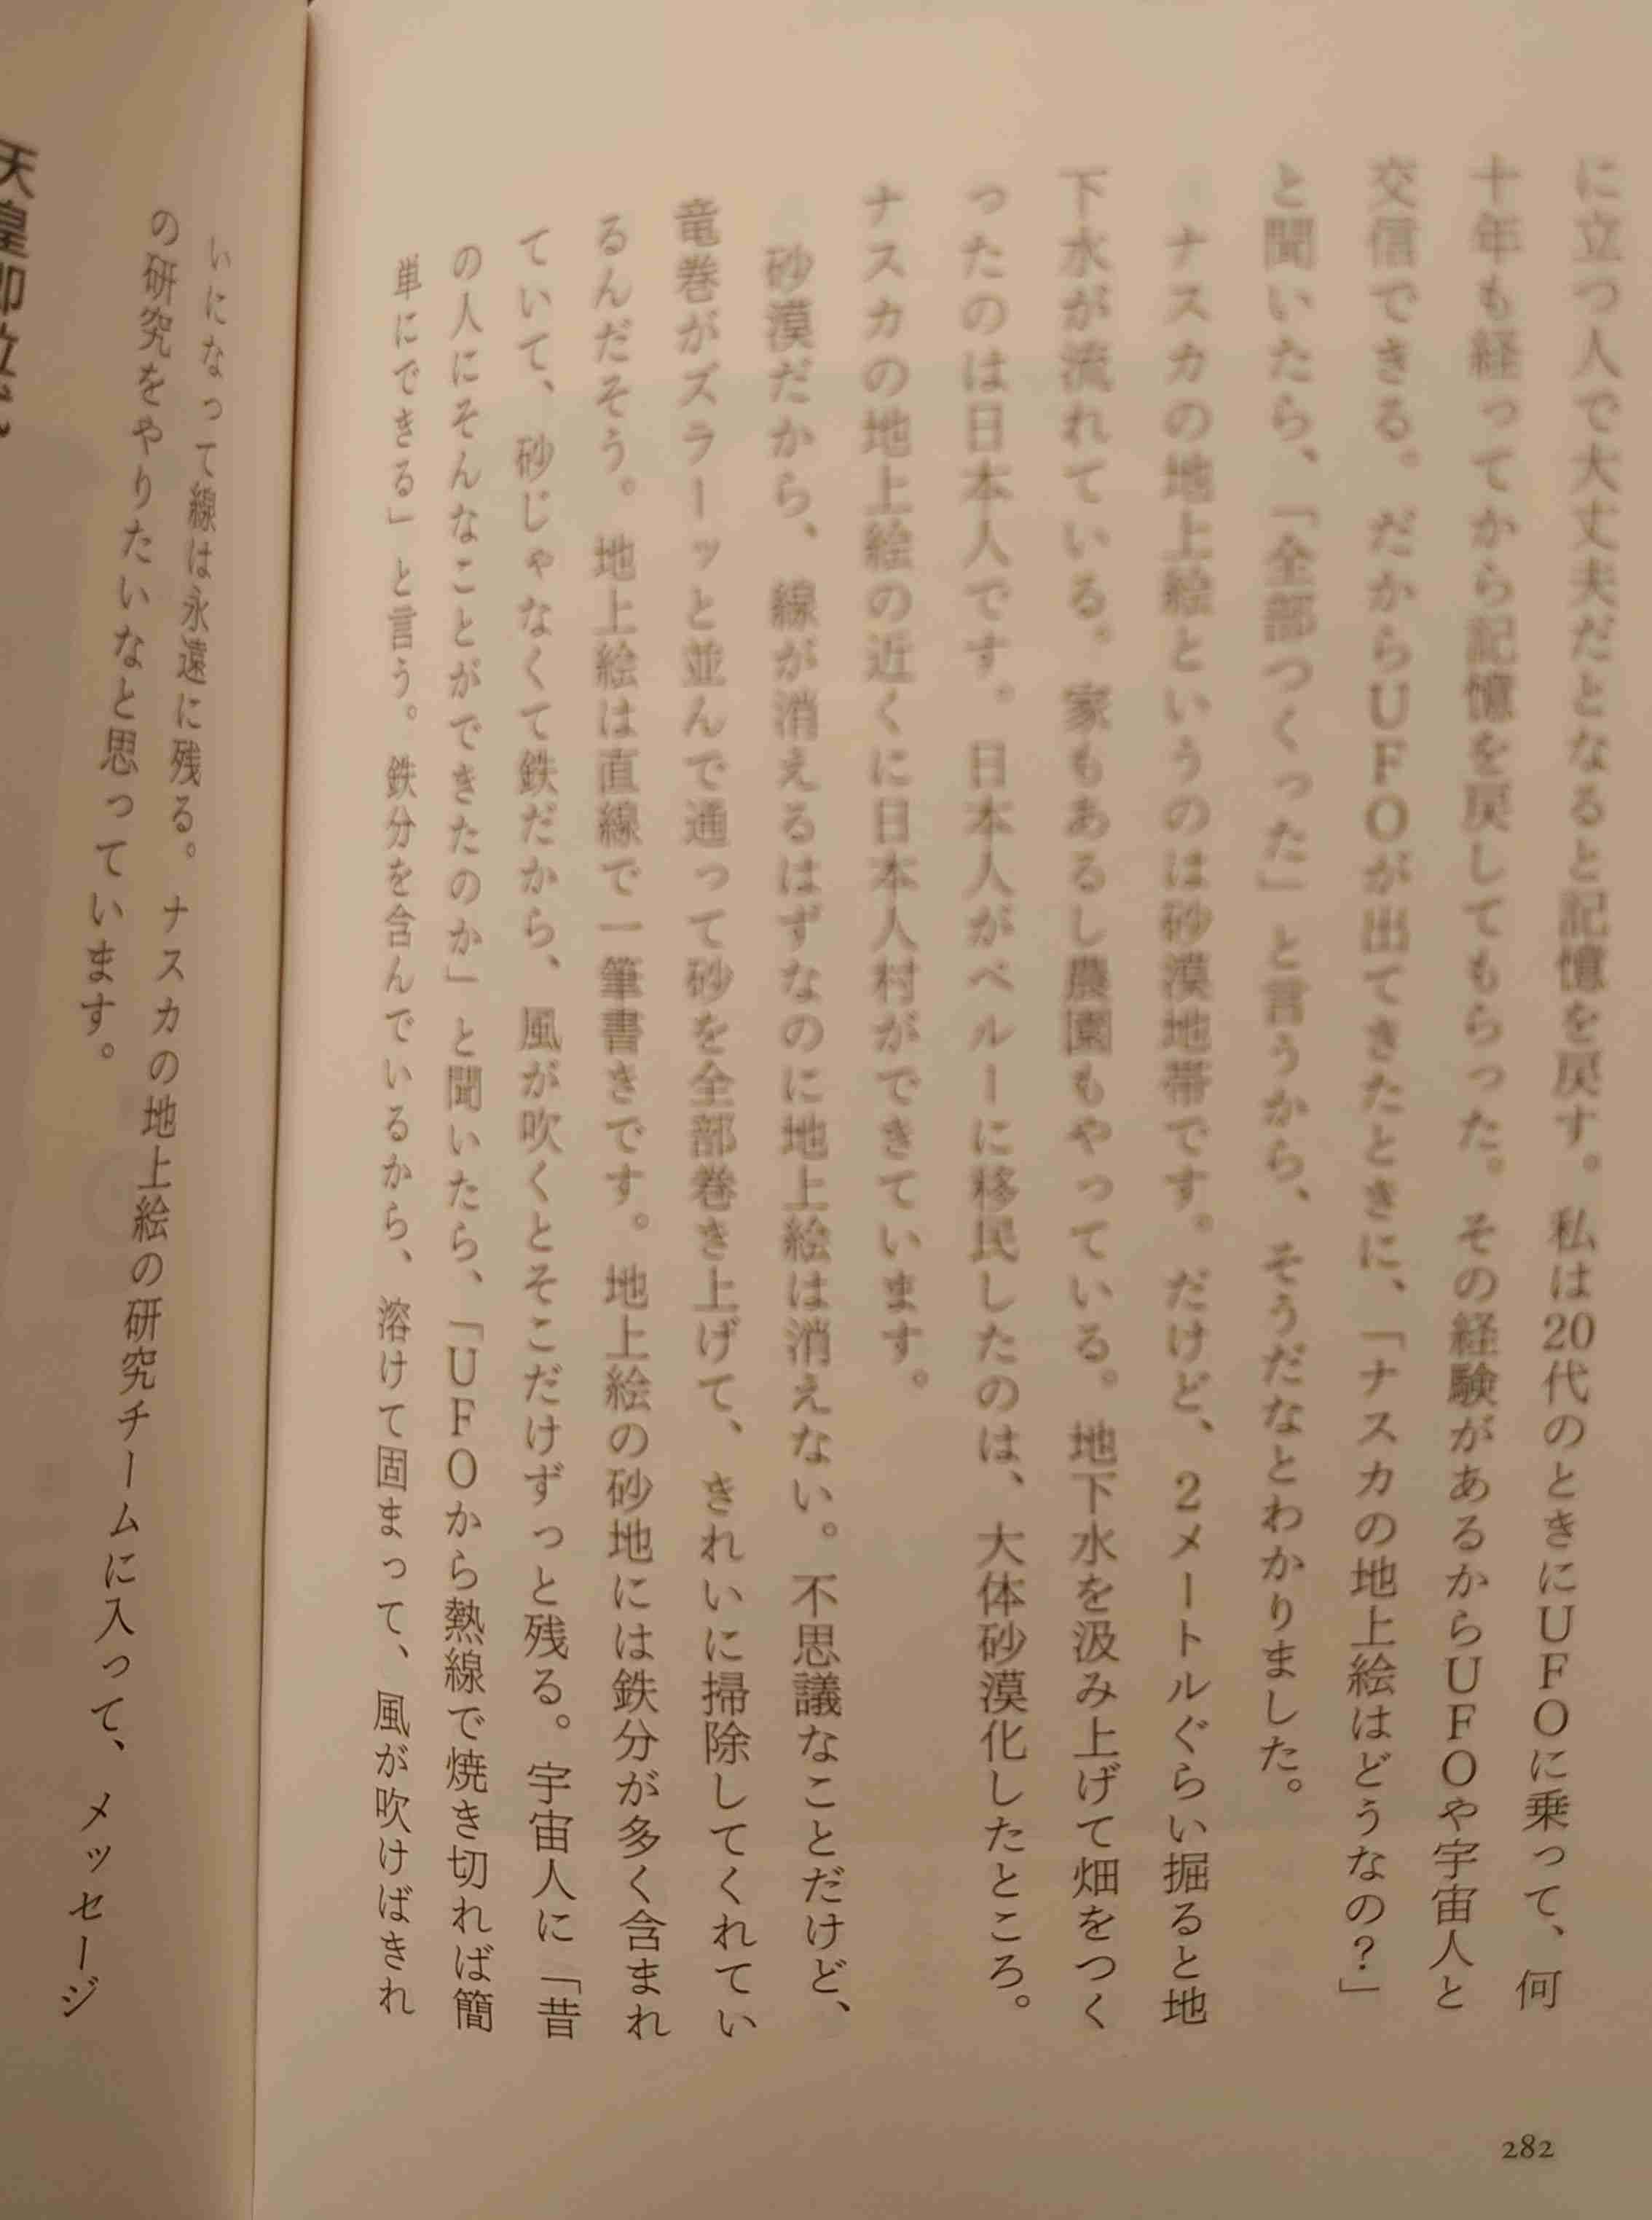 に立つ人で大丈夫だとなると記憶を戻す。私は20代のときにUFOに乗って、何
十年も経ってから記憶を戻してもらった。その経験があるからUFOや宇宙人と
交信できる。だからUFOが出てきたときに、「ナスカの地上絵はどうなの？」
と聞いたら、「全部つくった」と言うから、そうだなとわかりました。
ナスカの地上絵というのは砂漠地帯です。だけど、2メートルぐらい掘ると地
下水が流れている。家もあるし農園もやっている。地下水を汲み上げて畑をつく
ったのは日本人です。日本人がペルーに移民したのは、大体砂漠化したところ。
ナスカの地上絵の近くに日本人村ができています。
砂漠だから、線が消えるはずなのに地上絵は消えない。不思議なことだけど、
竜巻がズラーッと並んで通って砂を全部巻き上げて、きれいに掃除してくれてい
るんだそう。地上絵は直線で一筆書きです。地上絵の砂地には鉄分が多く含まれ
ていて、砂じゃなくて鉄だから、風が吹くとそこだけずっと残る。宇宙人に「昔
の人にそんなことができたのか」と聞いたら、「UFOから熱線で焼き切れば簡
単にできる」と言う。鉄分を含んでいるから、溶けて固まって、風が吹けばきれ
いになって線は永遠に残る。ナスカの地上絵の研究チームに入って、メッセージ
の研究をやりたいなと思っています。
天皇即位
282